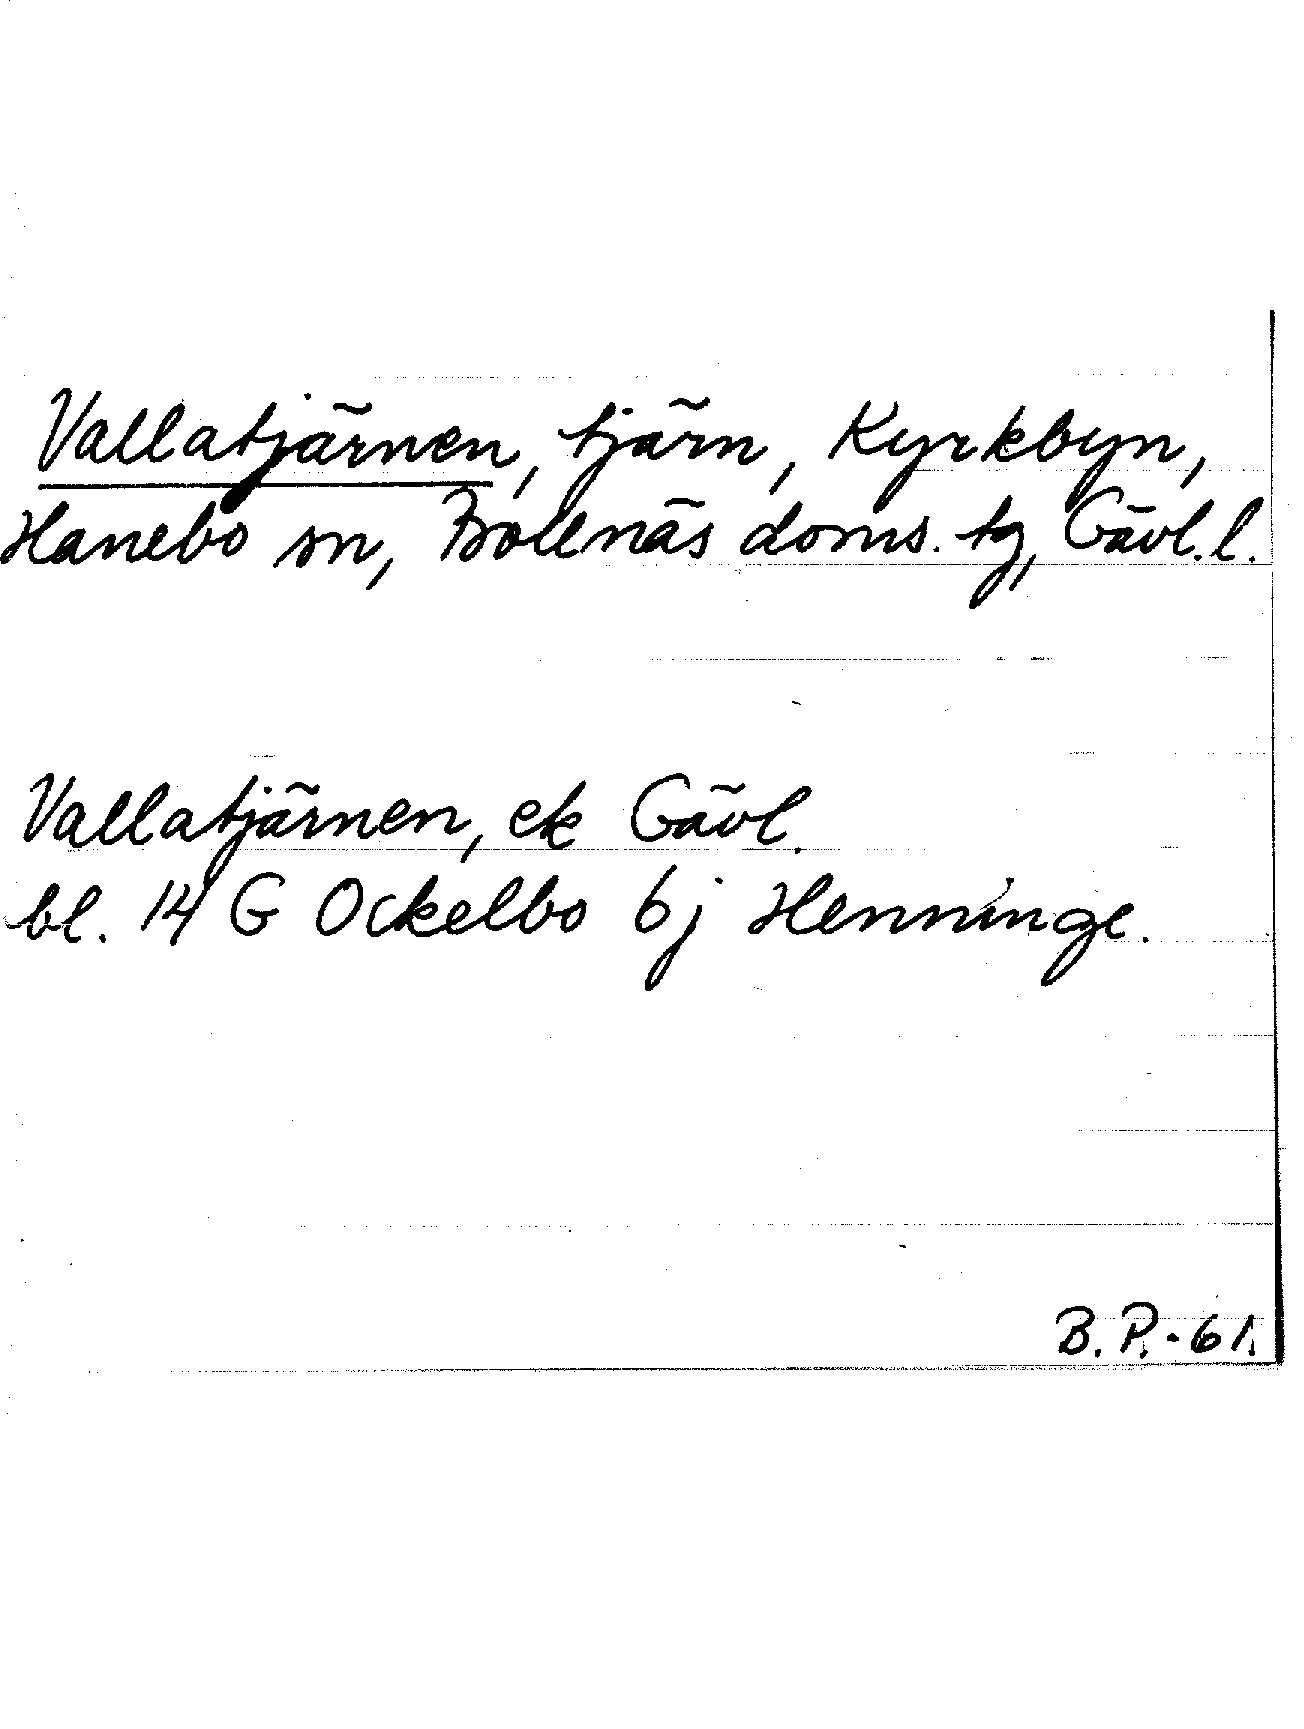 Vallatjärnen, tjärn, Kyrkbyn,
Hanebo sn, Bollnäs doms. tg, Gävl. l.
Vallatjärnen, ek Gävl.
bl. 14 G Ockelbo 6 j Henninge.
B. P. - 61.